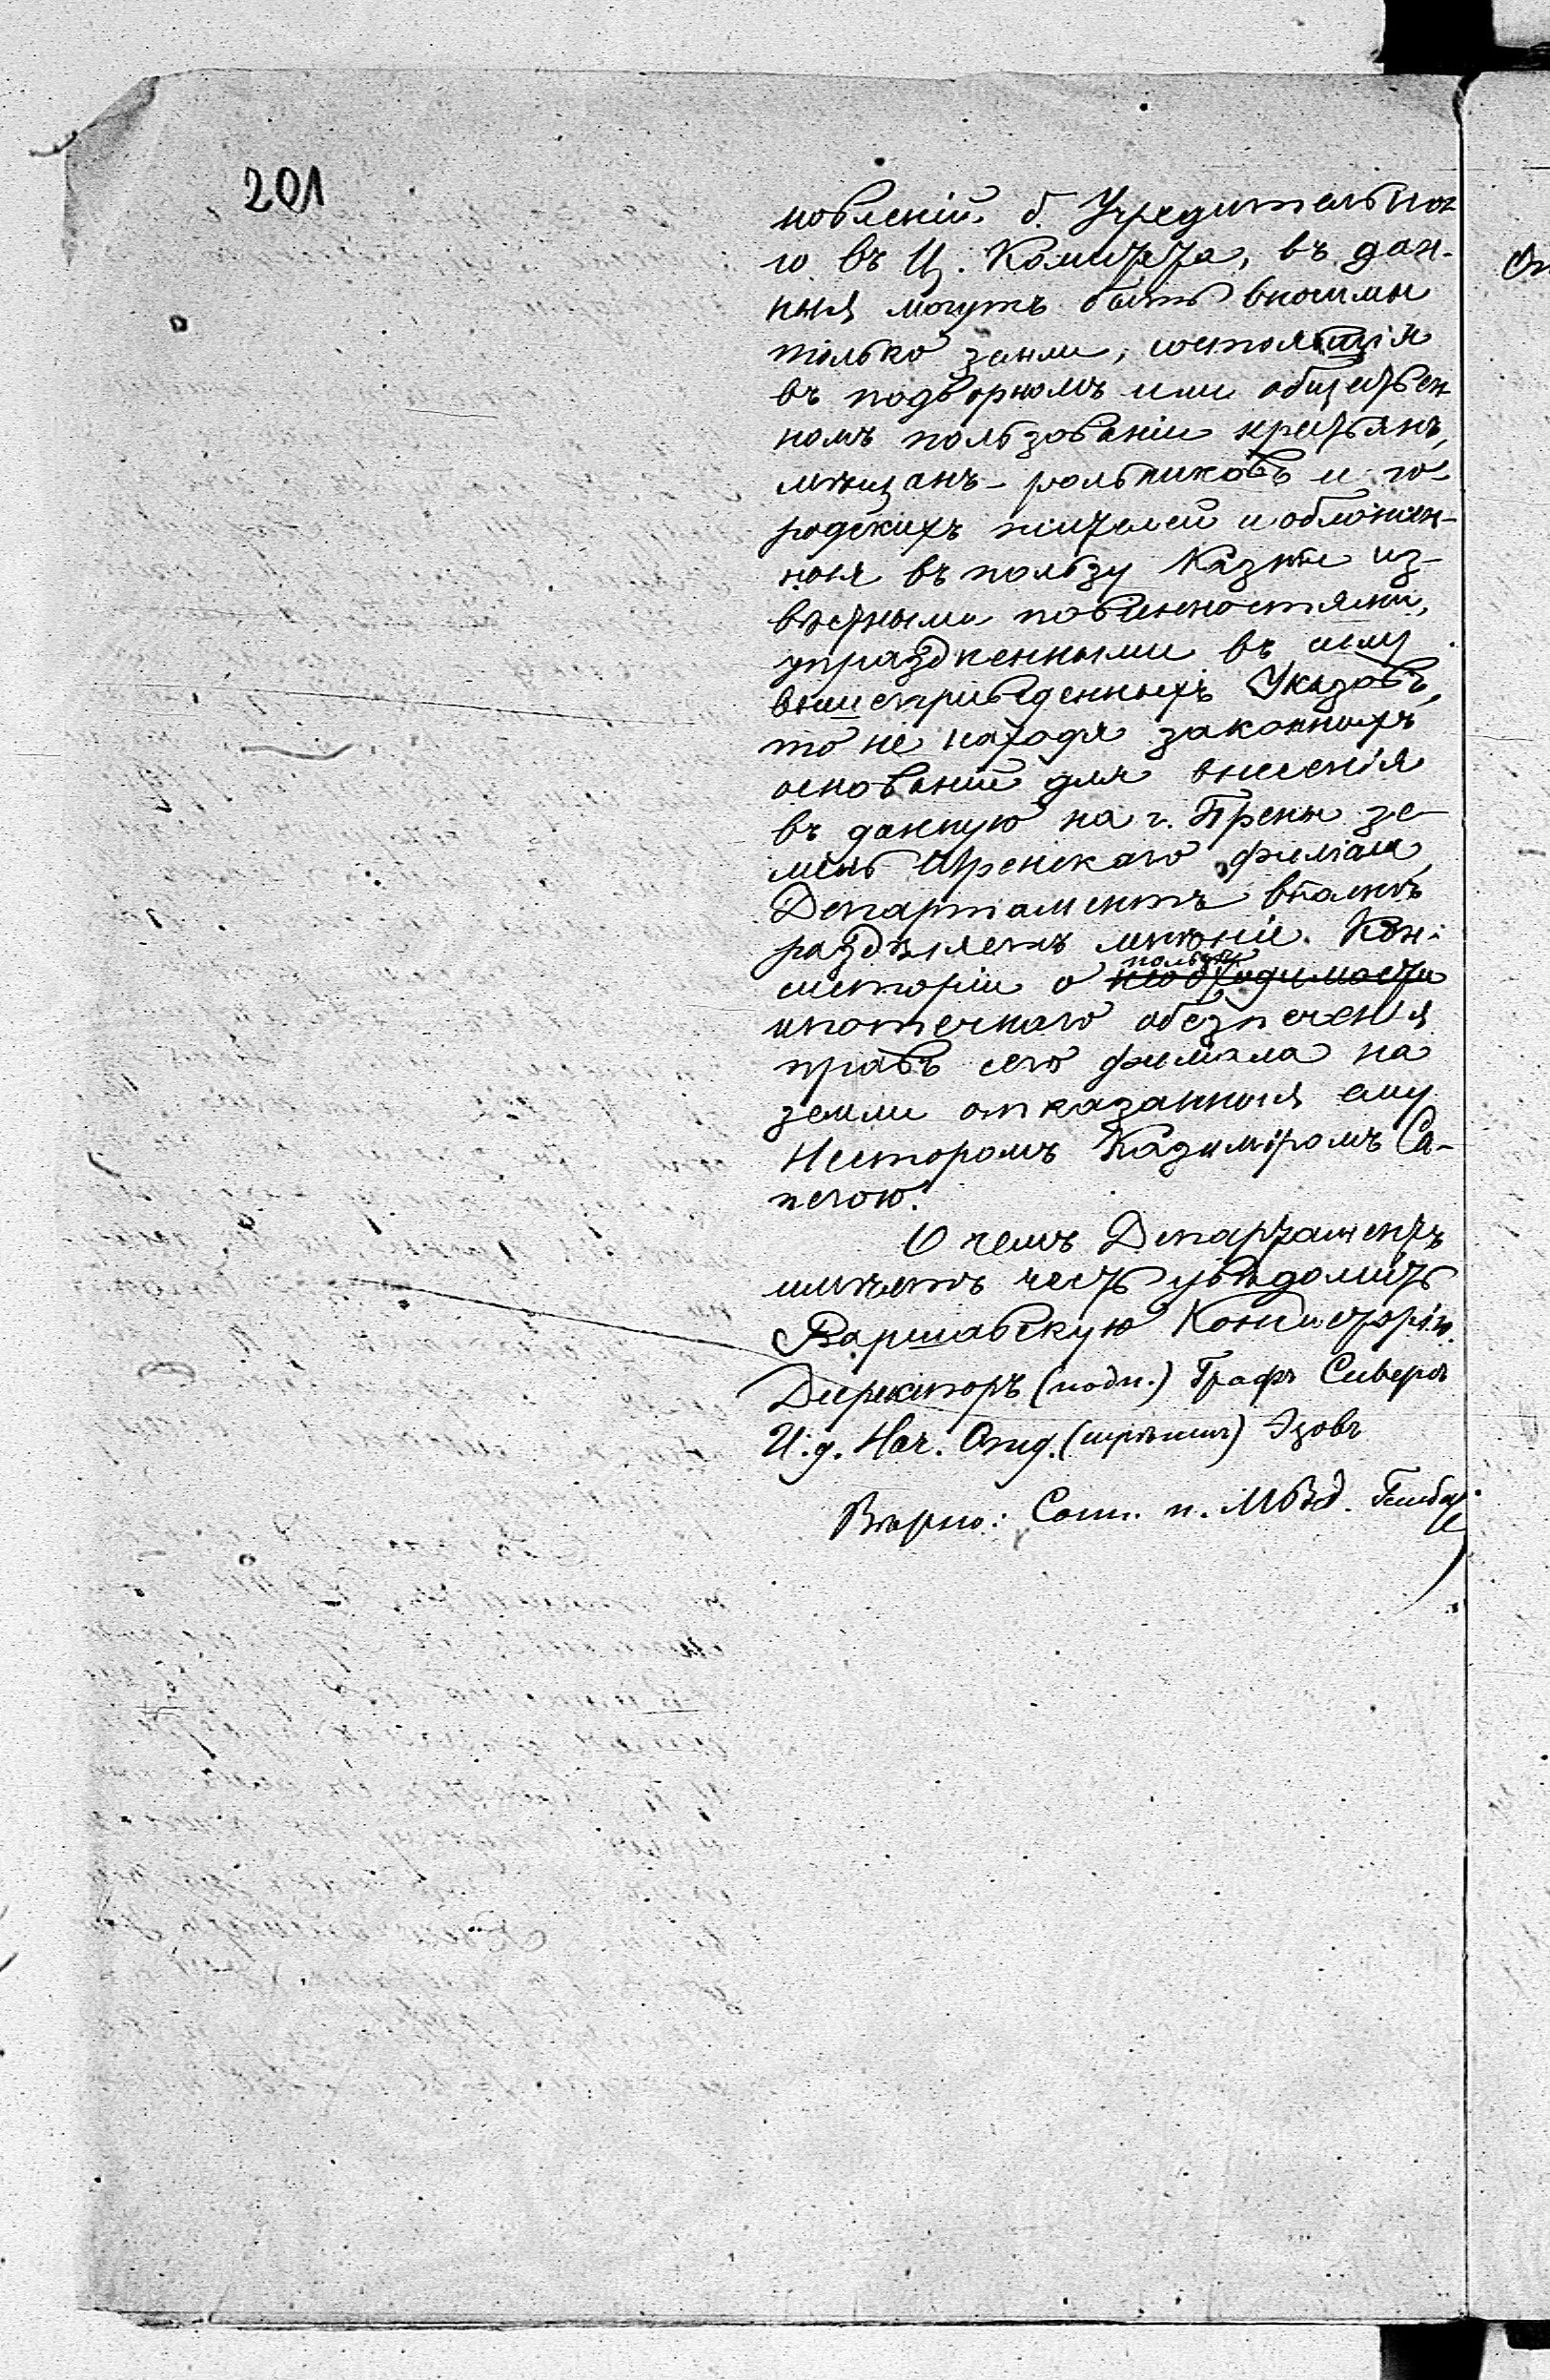 201
новленій б. Учредительна-
го въ Ц. Комитета, въ дан-
ныя могутъ быть вносимы
только земли, состоящія
въ подворномъ или обществен
номъ пользованіи крестьянъ,
мѣщанъ-рольниковъ и го-
родскихъ жителей и обложен-
ныя въ пользу Казны из-
вѣстными повинностями,
упраздненными въ силу
вышеприведенныхъ Указовъ,
то не находя законныхъ
основаній для внесенія
въ данную на г. Прены зе-
мель Пренскаго филіала,
Департаментъ вполнѣ
раздѣляетъ мнѣніе Кон-
систоріи о пользѣ необходимости
ипотечнаго обезпеченія
правъ сего филіала на
земли отказанныя ему
Несторомъ Казиміромъ Са-
пегою.
О чемъ Департаментъ
имѣетъ честь увѣдомить
Варшавскую Консисторію.
Директоръ (подп.) Графъ Сиверсъ
И. д. Нач. Отд. (скрѣпилъ) Изовъ
Вѣрно: